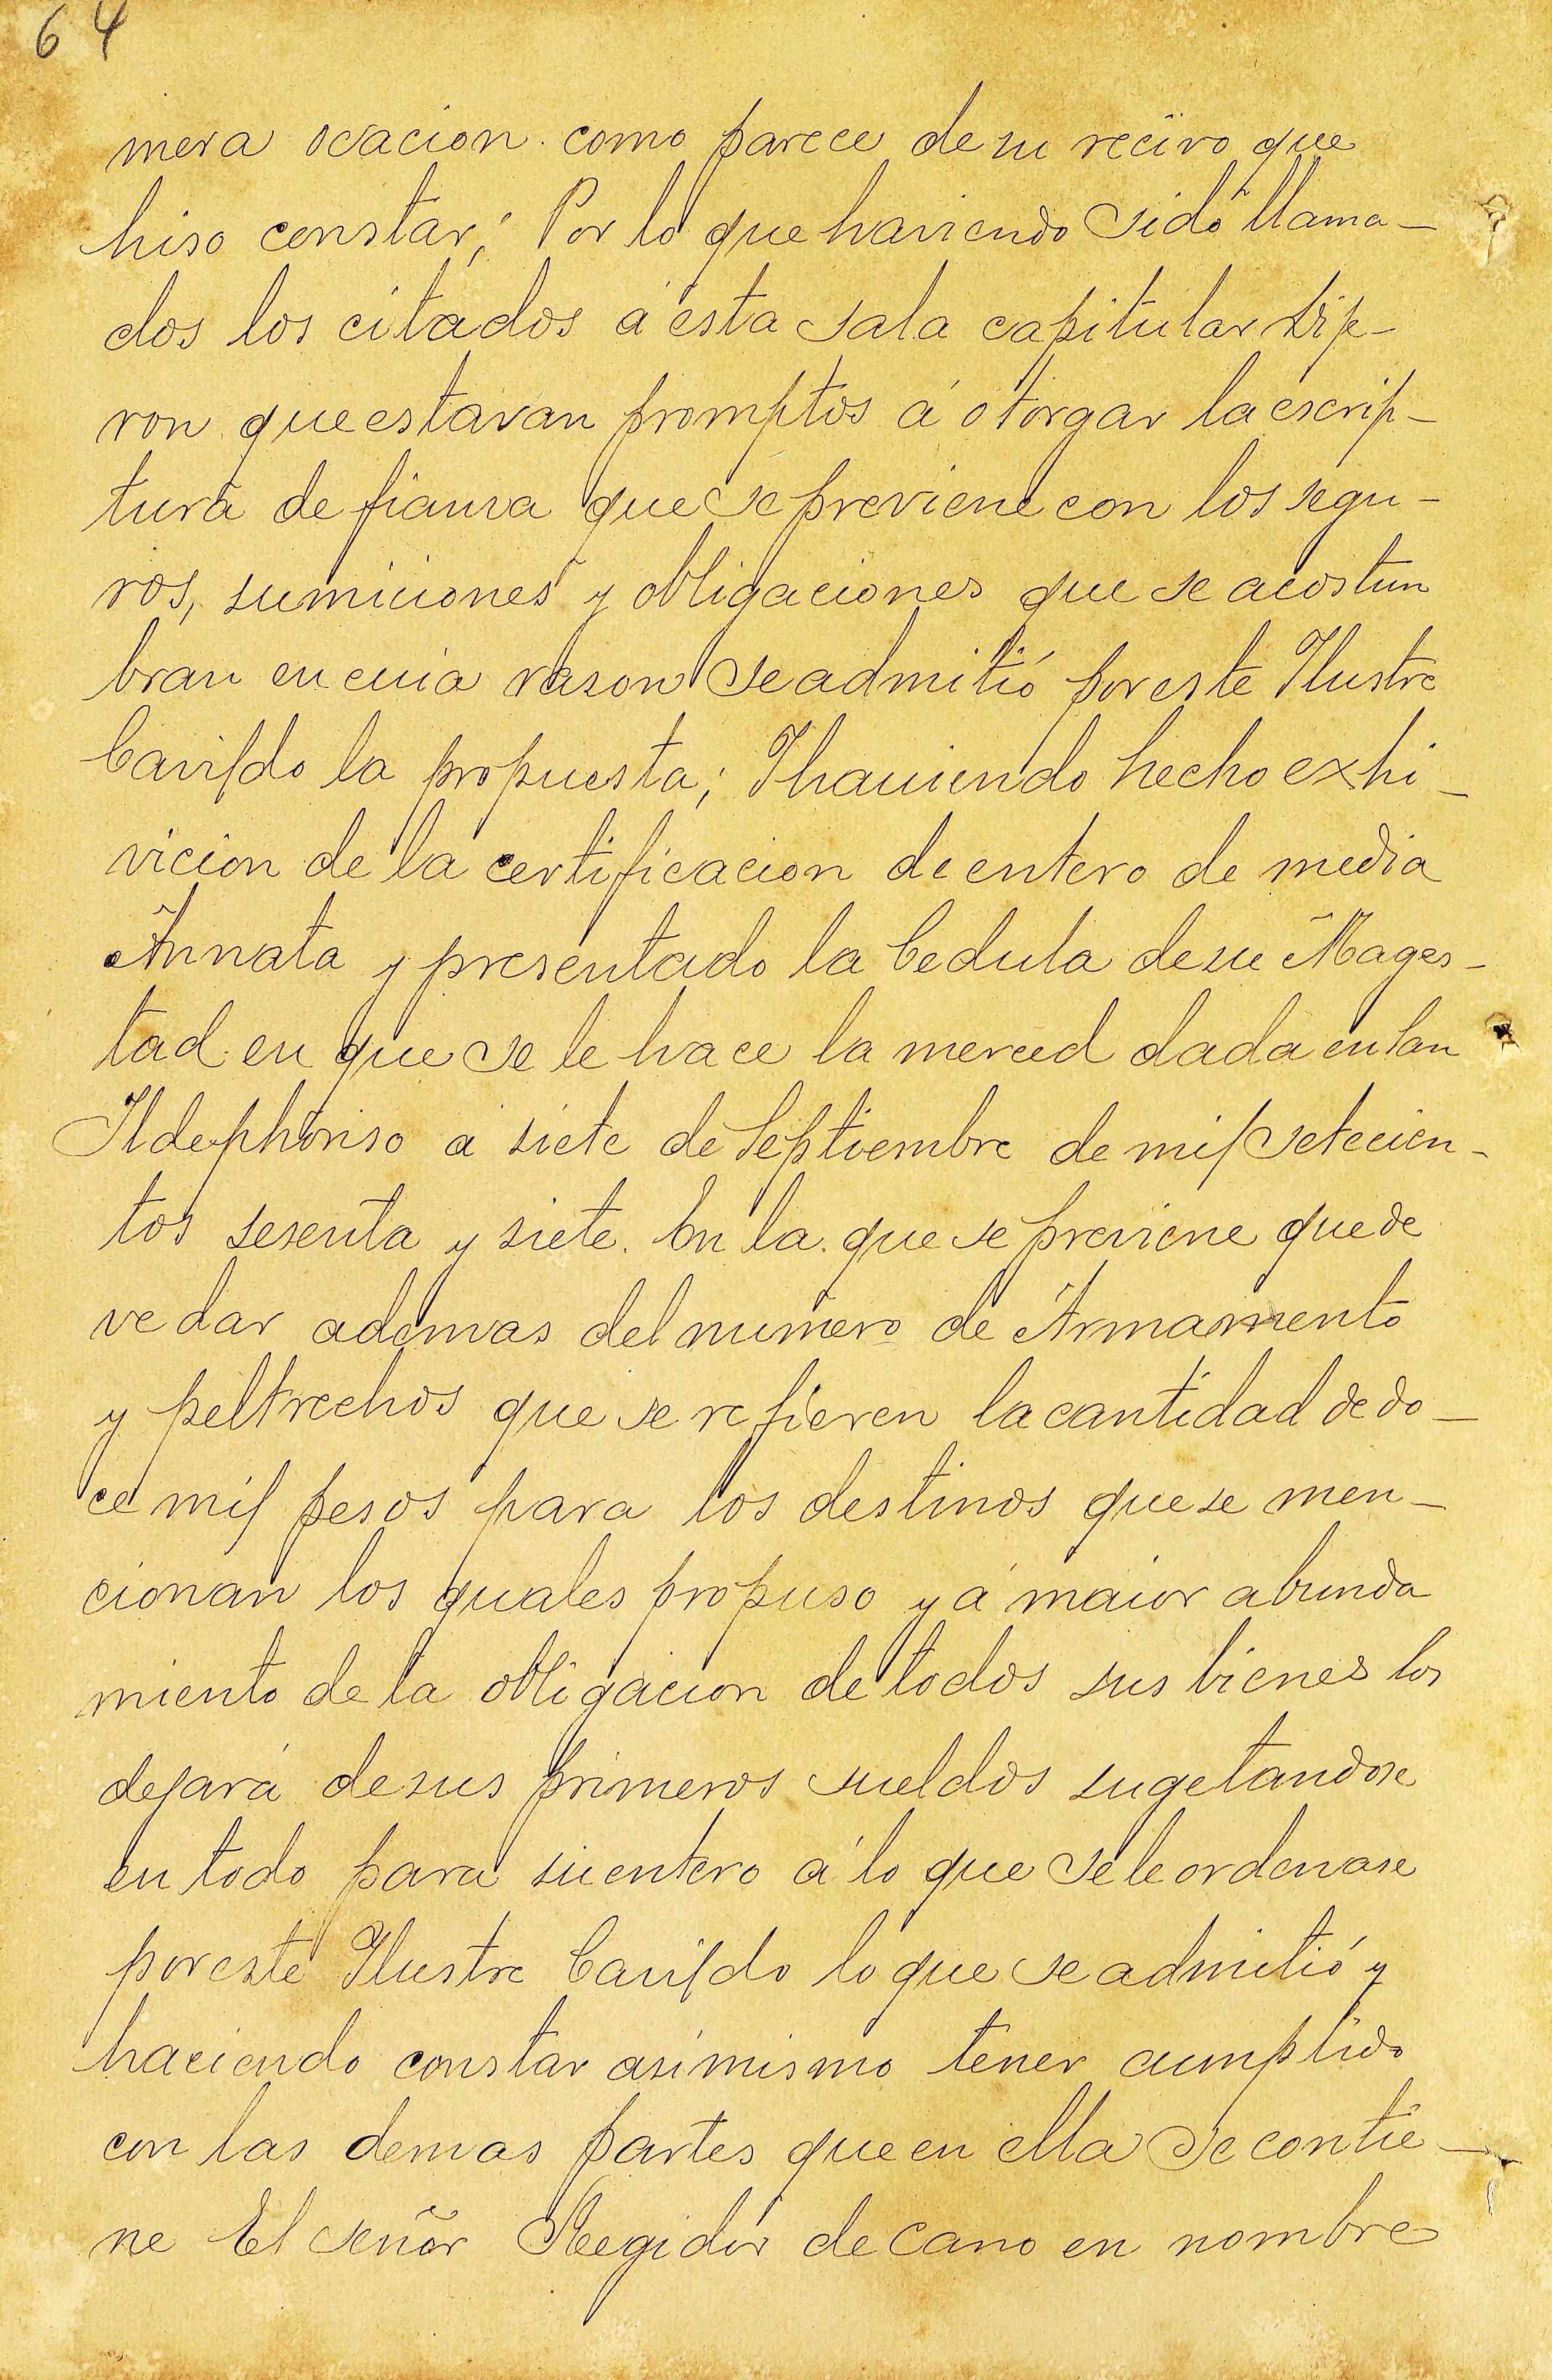 64
mera ocacion como parece de su recivo que
hiso constar; Por lo que haviendo sido llama-
dos los citados á esta sala capitular dije-
ron que estavan promptos á otorgar la escrip-
tura de fianza que se previene con los segu-
ros, sumiciones y obligaciones que se acostum
bran en cuia rason se admitió por este Ilustre
Cavildo la propuesta; I haviendo hecho exhi-
vicion de la certificacion de entero de media
Annata y presentado la Cedula de su Mages-
tad en que se le hace la merced dada en San
Ildephonso a siete de Septiembre de mil setecien-
tos sesenta y siete. En la que se previene que de
ve dar ademas del numero de Armamento
y peltrechos que se refieren la cantidad de do-
ce mil pesos para los destinos que se men-
cionan los quales propuso y á maior abunda
miento de la obligacion de todos sus bienes los
dejará de sus primeros sueldos sugetandose
en todo para su entero á lo que se le ordenase
por este Ilustre Cavildo lo que se admitió y
haciendo constar asimismo tener cumplido
con las demas partes que en ella se contie-
ne El señor Regidor decano en nombre